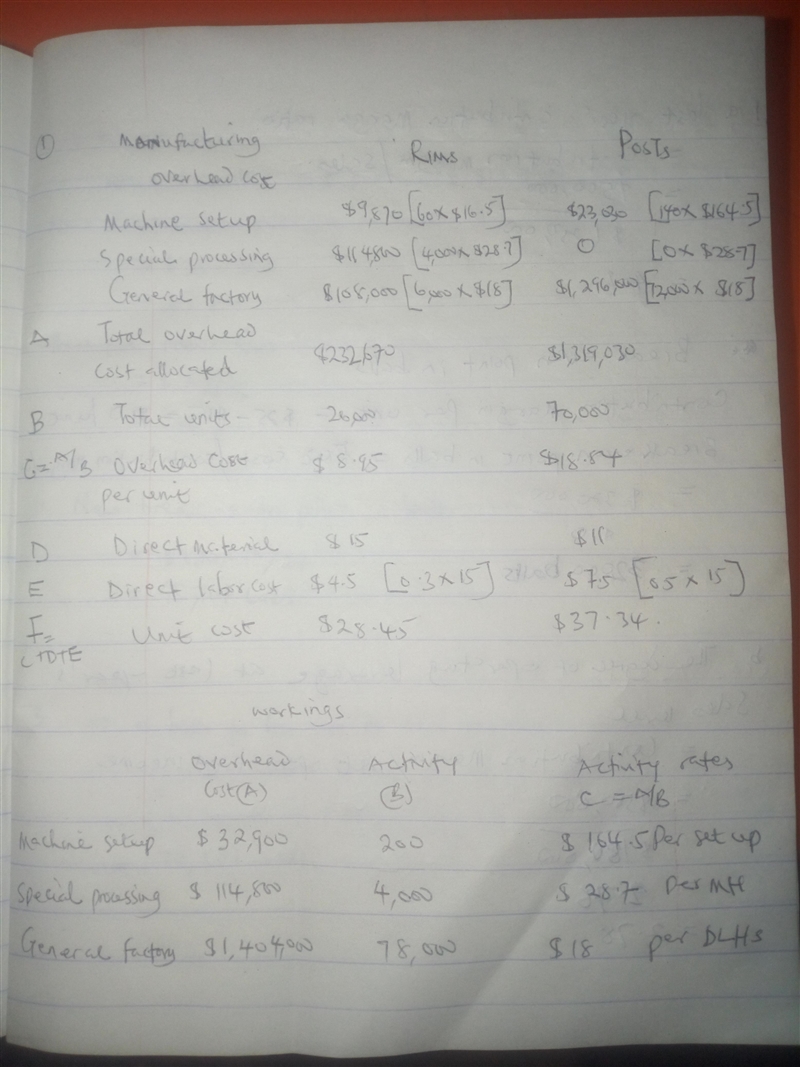 ① Manufacturing Rims Posts
overhead cost
Machine setup $9,870 [60 x $16.5] $23,030 [140 x $164.5]
Special processing $114800 [4,000 x $28.7] 0 [0 x $28.7]
General factory $108,000 [6,000 x $18] $1,296,000 [72,000 x $18]
A Total overhead
cost allocated $232,670 $1,319,030
B Total units- 26,000 70,000
C=A/B Overhead cost $8.95 $18.84
per unit
D Direct material $15 $11
E Direct labor cost $4.5 [0.3 x 15] $7.5 [0.5 x 15]
F= Unit cost $28.45 $37.34.
C+D+E
workings
Overhead Activity Activity rates
Cost (A) (B) C = A/B
Machine setup $32,900 200 $164.5 per set up
Special processing $114,800 4,000 $28.7 per MH
General factory $1,404,000 78,000 $18 per DLHs